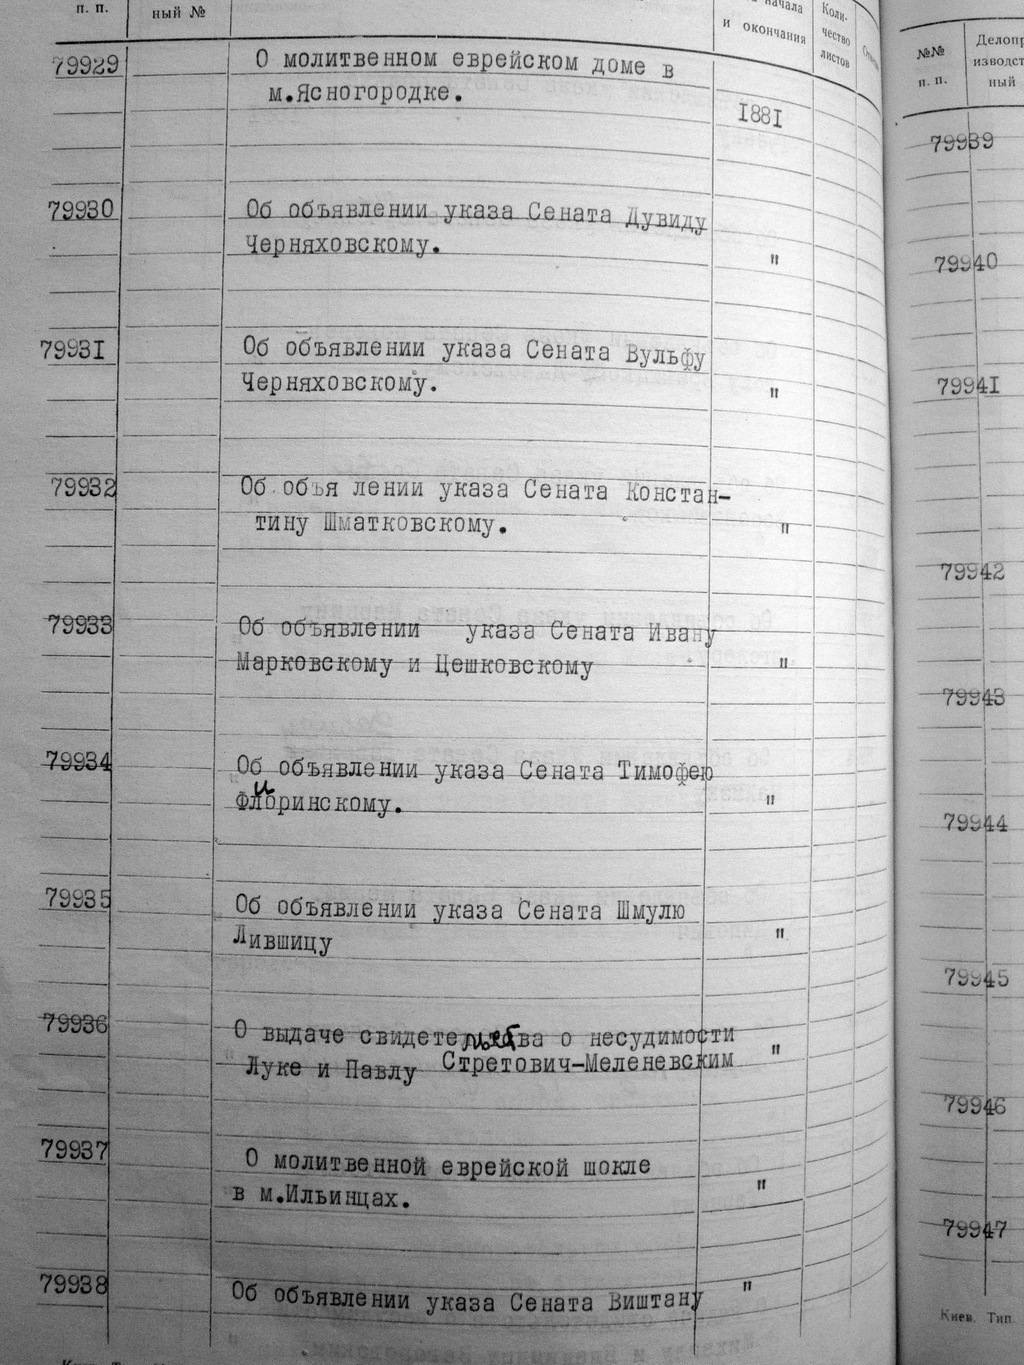 п. п.
ный №
начала
и окончания
Коли-
чество
листов
79929
О молитвенном еврейском доме в
м.Ясногородке.
1881
79930
Об объявлении указа Сената Дувиду
Черняховскому.
"
79931
Об объявлении указа Сената Вульфу
Черняховскому.
"
79932
Об объя лении указа Сената Констан-
тину Шматковскому.
"
79933
Об объявлении указа Сената Ивану
Марковскому и Цешковскому
"
79934
Об объявлении указа Сената Тимофею
Флоринскому.
"
79935
Об объявлении указа Сената Шмулю
Лившицу
"
79936
О выдаче свидетельства о несудимости
Луке и Павлу Стретович-Меленевским
"
79937
О молитвенной еврейской шокле
в м.Ильинцах.
"
79938
Об объявлении указа Сената Виштану
"
№№
п. п.
Делопр
изводст
ный
79939
79940
79941
79942
79943
79944
79945
79946
79947
Киев. Тип.